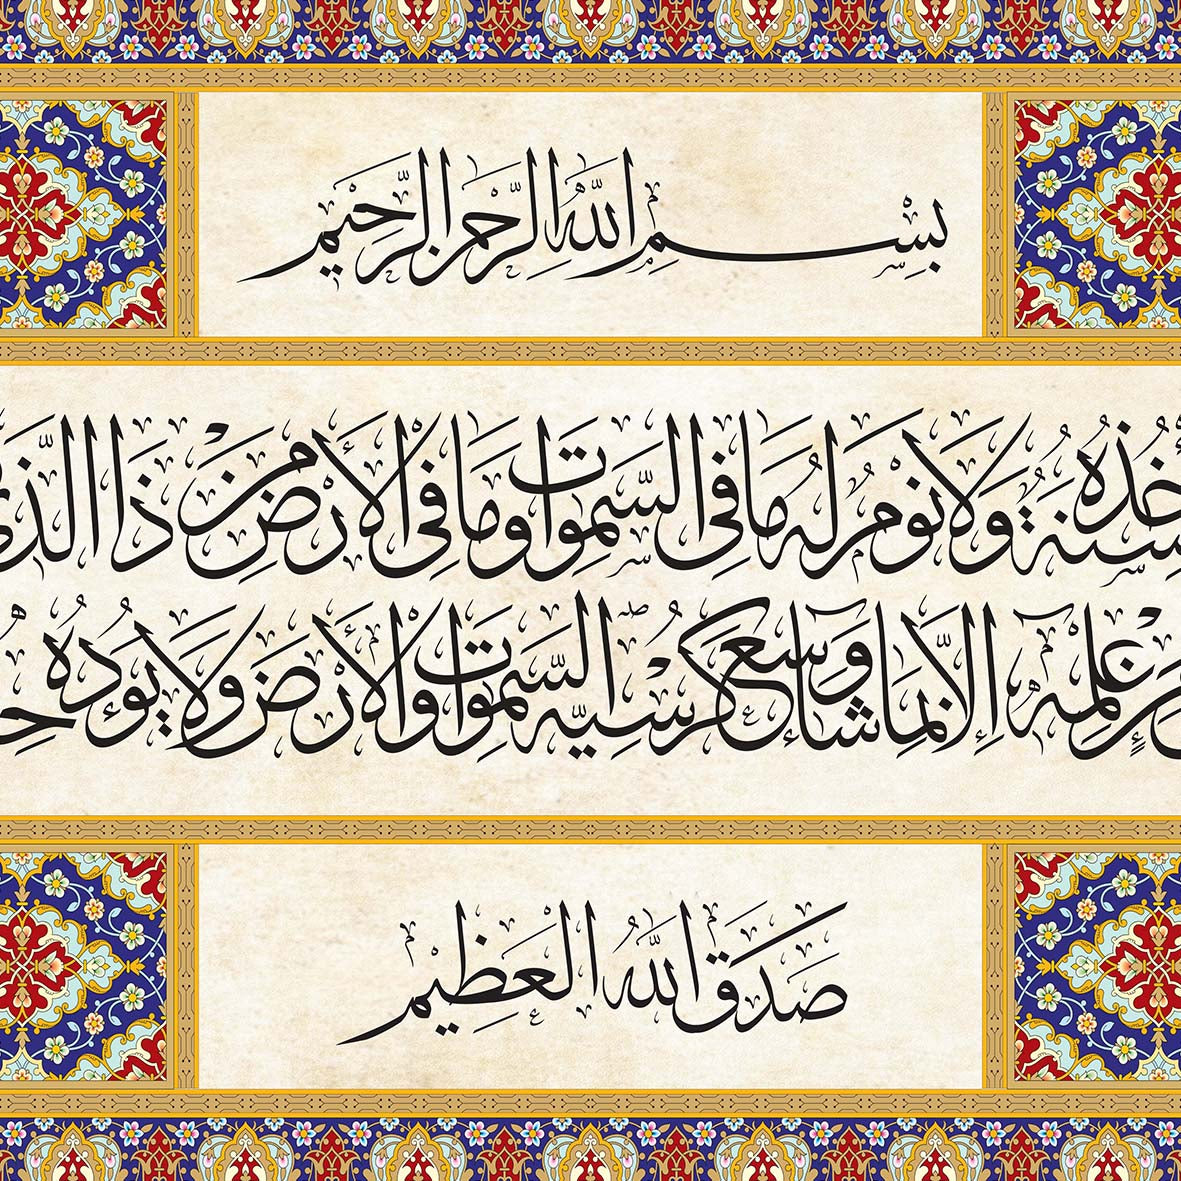 بِسْمِ اللهِ الرَّحْمنِ الرَّحِيمِ
سِنَةٌ وَلَا نَوْمٌ لَهُ مَا فِي السَّموَاتِ وَمَا فِي الْأَرْضِ مَنْ ذَا الَّذِي
عِلْمِهِ إِلَّا بِمَا شَاءَ وَسِعَ كُرْسِيُّهُ السَّموَاتِ وَالْأَرْضَ وَلَا يَؤُدُهُ
صَدَقَ اللهُ الْعَظِيمُ